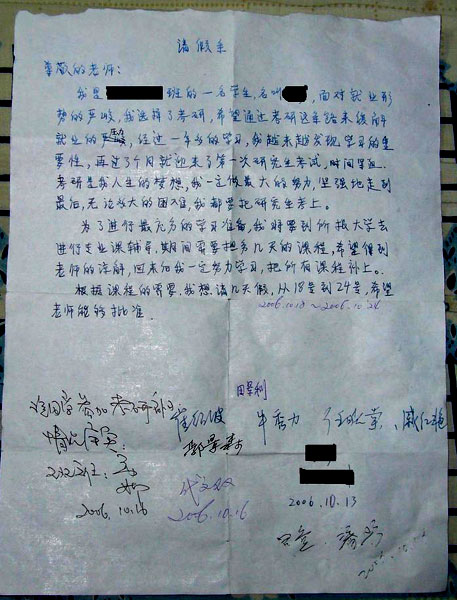 请假条
尊敬的老师:
我是 班的一名学生,名叫 ,面对就业形
势的严峻,我选择了考研,希望通过考研这条路来缓解
就业的严峻,经过一年多的学习,我越来越发现学习的重
要性,再过3个月就迎来了第一次研究生考试,时间紧迫。
考研是我人生的梦想,我一定做最大的努力,坚强地走到
最后,无论多大的困难,我都要把研究生考上。
为了进行最充分的学习准备,我将要到所报大学去
进行专业课辅导,期间需要担误几天的课程,希望得到
老师的谅解,回来后我一定努力学习,把所有课程补上。
根据课程的需要,我想请几天假,从18号到24号,希望
老师能够批准。
2006.10.18 ~ 2006.10.24
该同学参加考研补习
情况属实
班主任:
2006.10.16
2006.10.16
2006.10.13